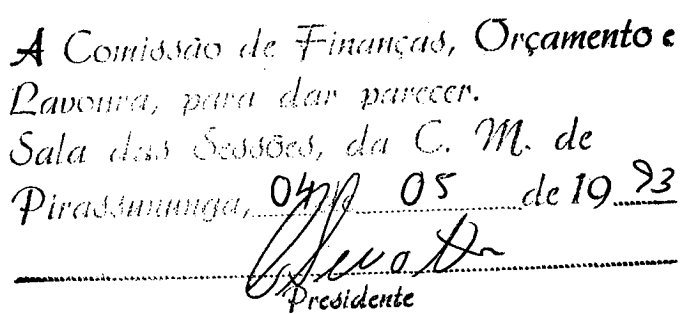 A Comissão de Finanças, Orçamento e
Lavoura, para dar parecer.
Sala das Sessões, da C. M. de
Pirassununga, 04 de 05 de 19 93
Presidente